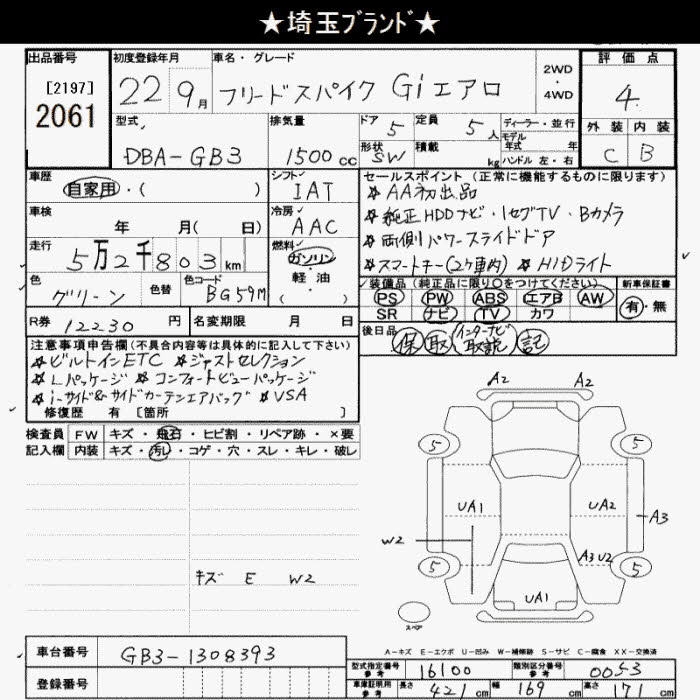 ★埼玉ブランド★
出品番号 初度登録年月 車名・グレード 評価点
[2197]
2061
22 9月 フリードスパイク Giエアロ 2WD・4WD 4
型式 排気量 ドア 5 定員 5人 ディーラー・並行 外装 内装
モデル年式 年
DBA-GB3 1500cc 形状 SW 積載 kg ハンドル 左・右 C B
車歴 シフト セールスポイント(正常に機能するものに限ります)
自家用・( ) IAT ☆AA初出品
車検 冷房 ☆純正HDDナビ・1セグTV・Bカメラ
年 月( 日) AAC ☆両側パワースライドドア
走行 燃料 ☆スマートキー(2ケ車内) ☆HIDライト
5万2千803km ガソリン・軽・油( )
色 色替 色コード 装備品(純正品に限り○をつけてください) 新車保証書
グリーン BG59M PS PW ABS エアB AW 有・無
SR ナビ TV カワ
R券 12230円 名変期限 月 日 後日品 保 取 インターナビ取説 記
注意事項申告欄(不具合内容等は具体的に記入して下さい)
☆ビルトインETC ☆ジャストセレクション
☆Lパッケージ ☆コンフォートビューパッケージ
☆i-サイド&サイドカーテンエアバッグ ☆VSA
修復歴 有 [箇所 ]
検査員記入欄 FW キズ・飛石・ヒビ割・リペア跡・×要
内装 キズ・汚レ・コゲ・穴・スレ・キレ・破レ
A2 A2
5 5
UA1 UA2 A3
W2 A3U2
5 5
キズ E W2
UA1
スペア
A-キズ E-エクボ U-凹み W-補修跡 S-サビ C-腐食 XX-交換済
車台番号 GB3-1308393
型式指定番号参考 16100 類別区分番号参考 0053
登録番号 車庫証明用参考 長さ 421cm 幅 169cm 高さ 171cm